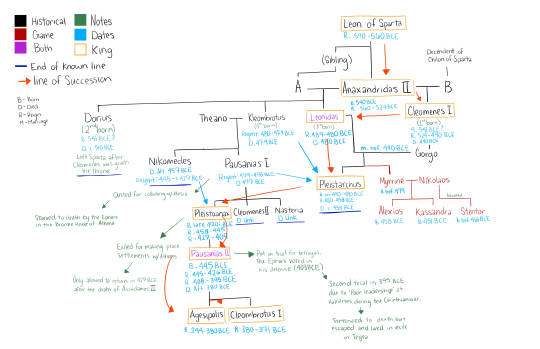 Historical
Game
Both
Notes
Dates
King
End of known line
line of Succession
B - Born
D - Died
R - Reign
M - Marriage
Leon of Sparta
R. 590-560 BCE
(Sibling)
A
Anaxandridas II
B
Decendent of
Chilon of Sparta
B. 560 BCE
R. 560-524 BCE
Dorius
(2nd born)
Left Sparta after
Cleomenes was given
the throne
Theano
Kleombrotus
D. 479 BCE
Leonidas
(3rd born)
R. 489-480 BCE
D. 480 BCE
Cleomenes I
(1st born)
R. 524-490 BCE
D. 490 BCE
m. bef. 490 BCE
Gorgo
Nikomedes
D. Aft 457 BCE
Pausanias I
D. 477 BCE
Pleistarchus
R. 480-458 BCE
D. c. 458 BCE
Myrrine
Nikolaos
Alexios
Kassandra
Stentor
B. 458 BCE
B. 451 BCE
Adopted
Ousted for colluding w/Persia
Starved to death by the Ephors
in the Bronze House of Athena
Pleistoanax
R. 458-445
R. 427-409
Cleomenes II
D. Unk
Nasteria
D. Unk
Exiled for making peace
Settlements w/Athens
Only allowed to return in 427 BCE
after the death of Archidamos II
Pausanias II
B. 445 BCE
R. 445-426 BCE
R. 408-395 BCE
D. Aft 380 BCE
Put on trial for betrayal.
The Ephors voted in
his defense (403 BCE)
Second trial in 395 BCE
due to "Poor leadership" at
Haliartus during the Corinthian war.
Sentenced to death, but
escaped and lived in exile
in Tegea
Agesipolis
R. 394-380 BCE
Cleombrotus I
R. 380-371 BCE